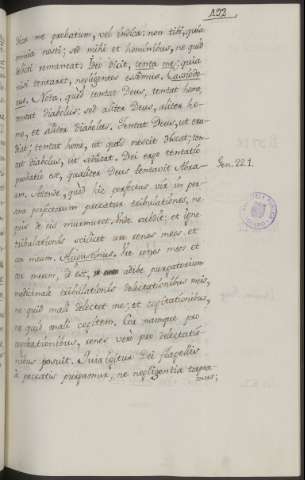 193
me probatum, vel indica: non tibi, quia
omnia nosti; sed mihi et hominibus, ne quid
remaneat. Dei dicit, tenta me: quia
nisi tentaret, negligentes essemus. Cassiodo
rus. Nota, quod tentat Deus, tentat homo,
tentat diabolus: sed aliter Deus, aliter ho-
mo, et aliter diabolus. Tentat Deus, ut eru-
diat; tentat homo, ut quod nescit discat; ten-
tat diabolus, ut seducat. Dei ergo tentatio
probatio est, qualiter Deus tentavit Abra-
Gen. 22. 1.
am. Attende, quod hic perfectus vir in per-
sona perfectorum precatur tribulationes, ne-
quis de iis murmuret. Inde addit: et igne
tribulationis scilicet ure renes meos et
cor meum. Augustinus. Ure renes meos et
cor meum, id est, adhibe purgatorium
medicinale tribulationis delectationibus meis,
ne quid mali delectet me; et cogitationibus,
ne quid mali cogitem. Cor namque pro
cogitationibus, renes vero pro delectatio-
nibus posuit. Dei flagellis
a peccatis purgamur, ne negligentia torpea-
mus;